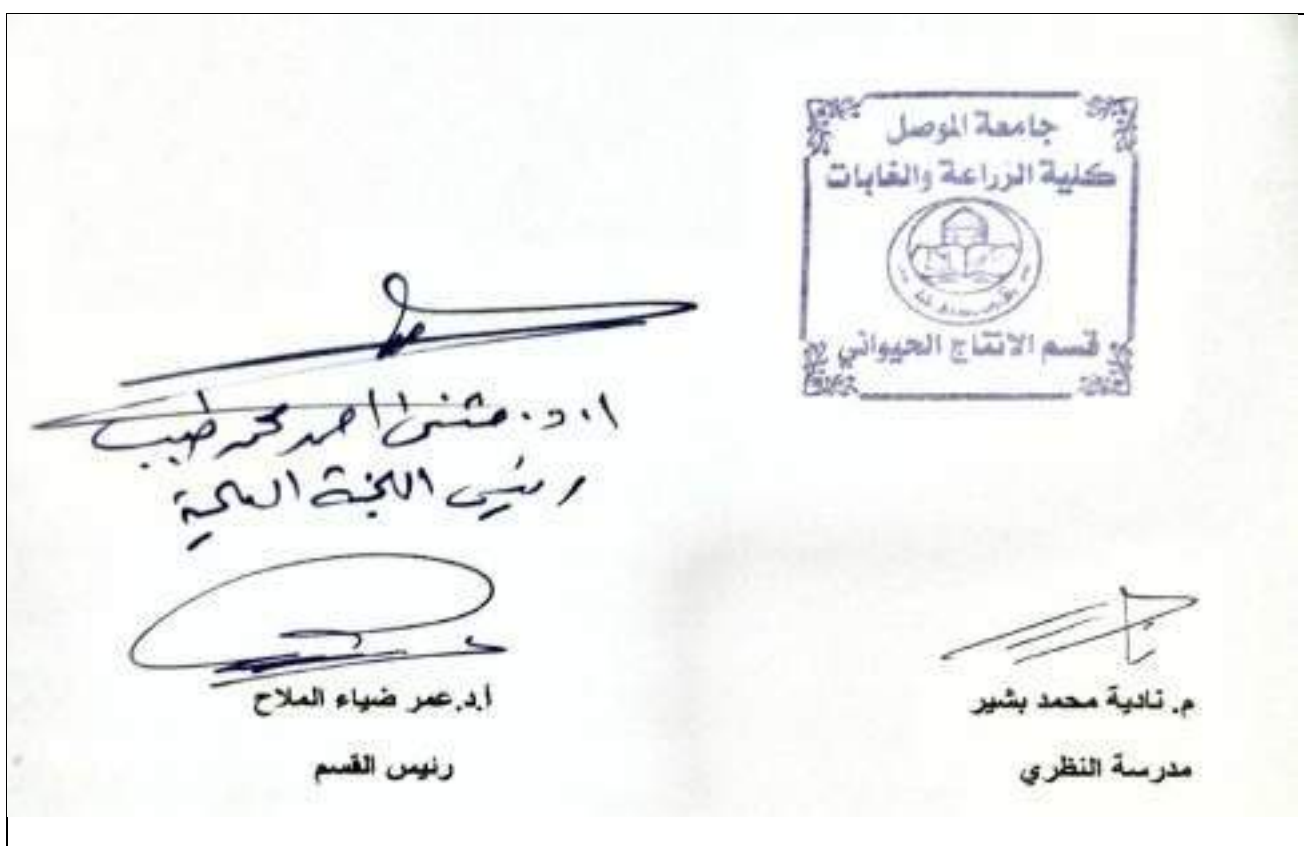 جامعة الموصل
كلية الزراعة والغابات
قسم الانتاج الحيواني
ا.د. مثنى احمد محمد طيب
رئيس اللجنة العلمية
م. نادية محمد بشير
مدرسة النظري
أ.د.عمر ضياء الملاح
رئيس القسم